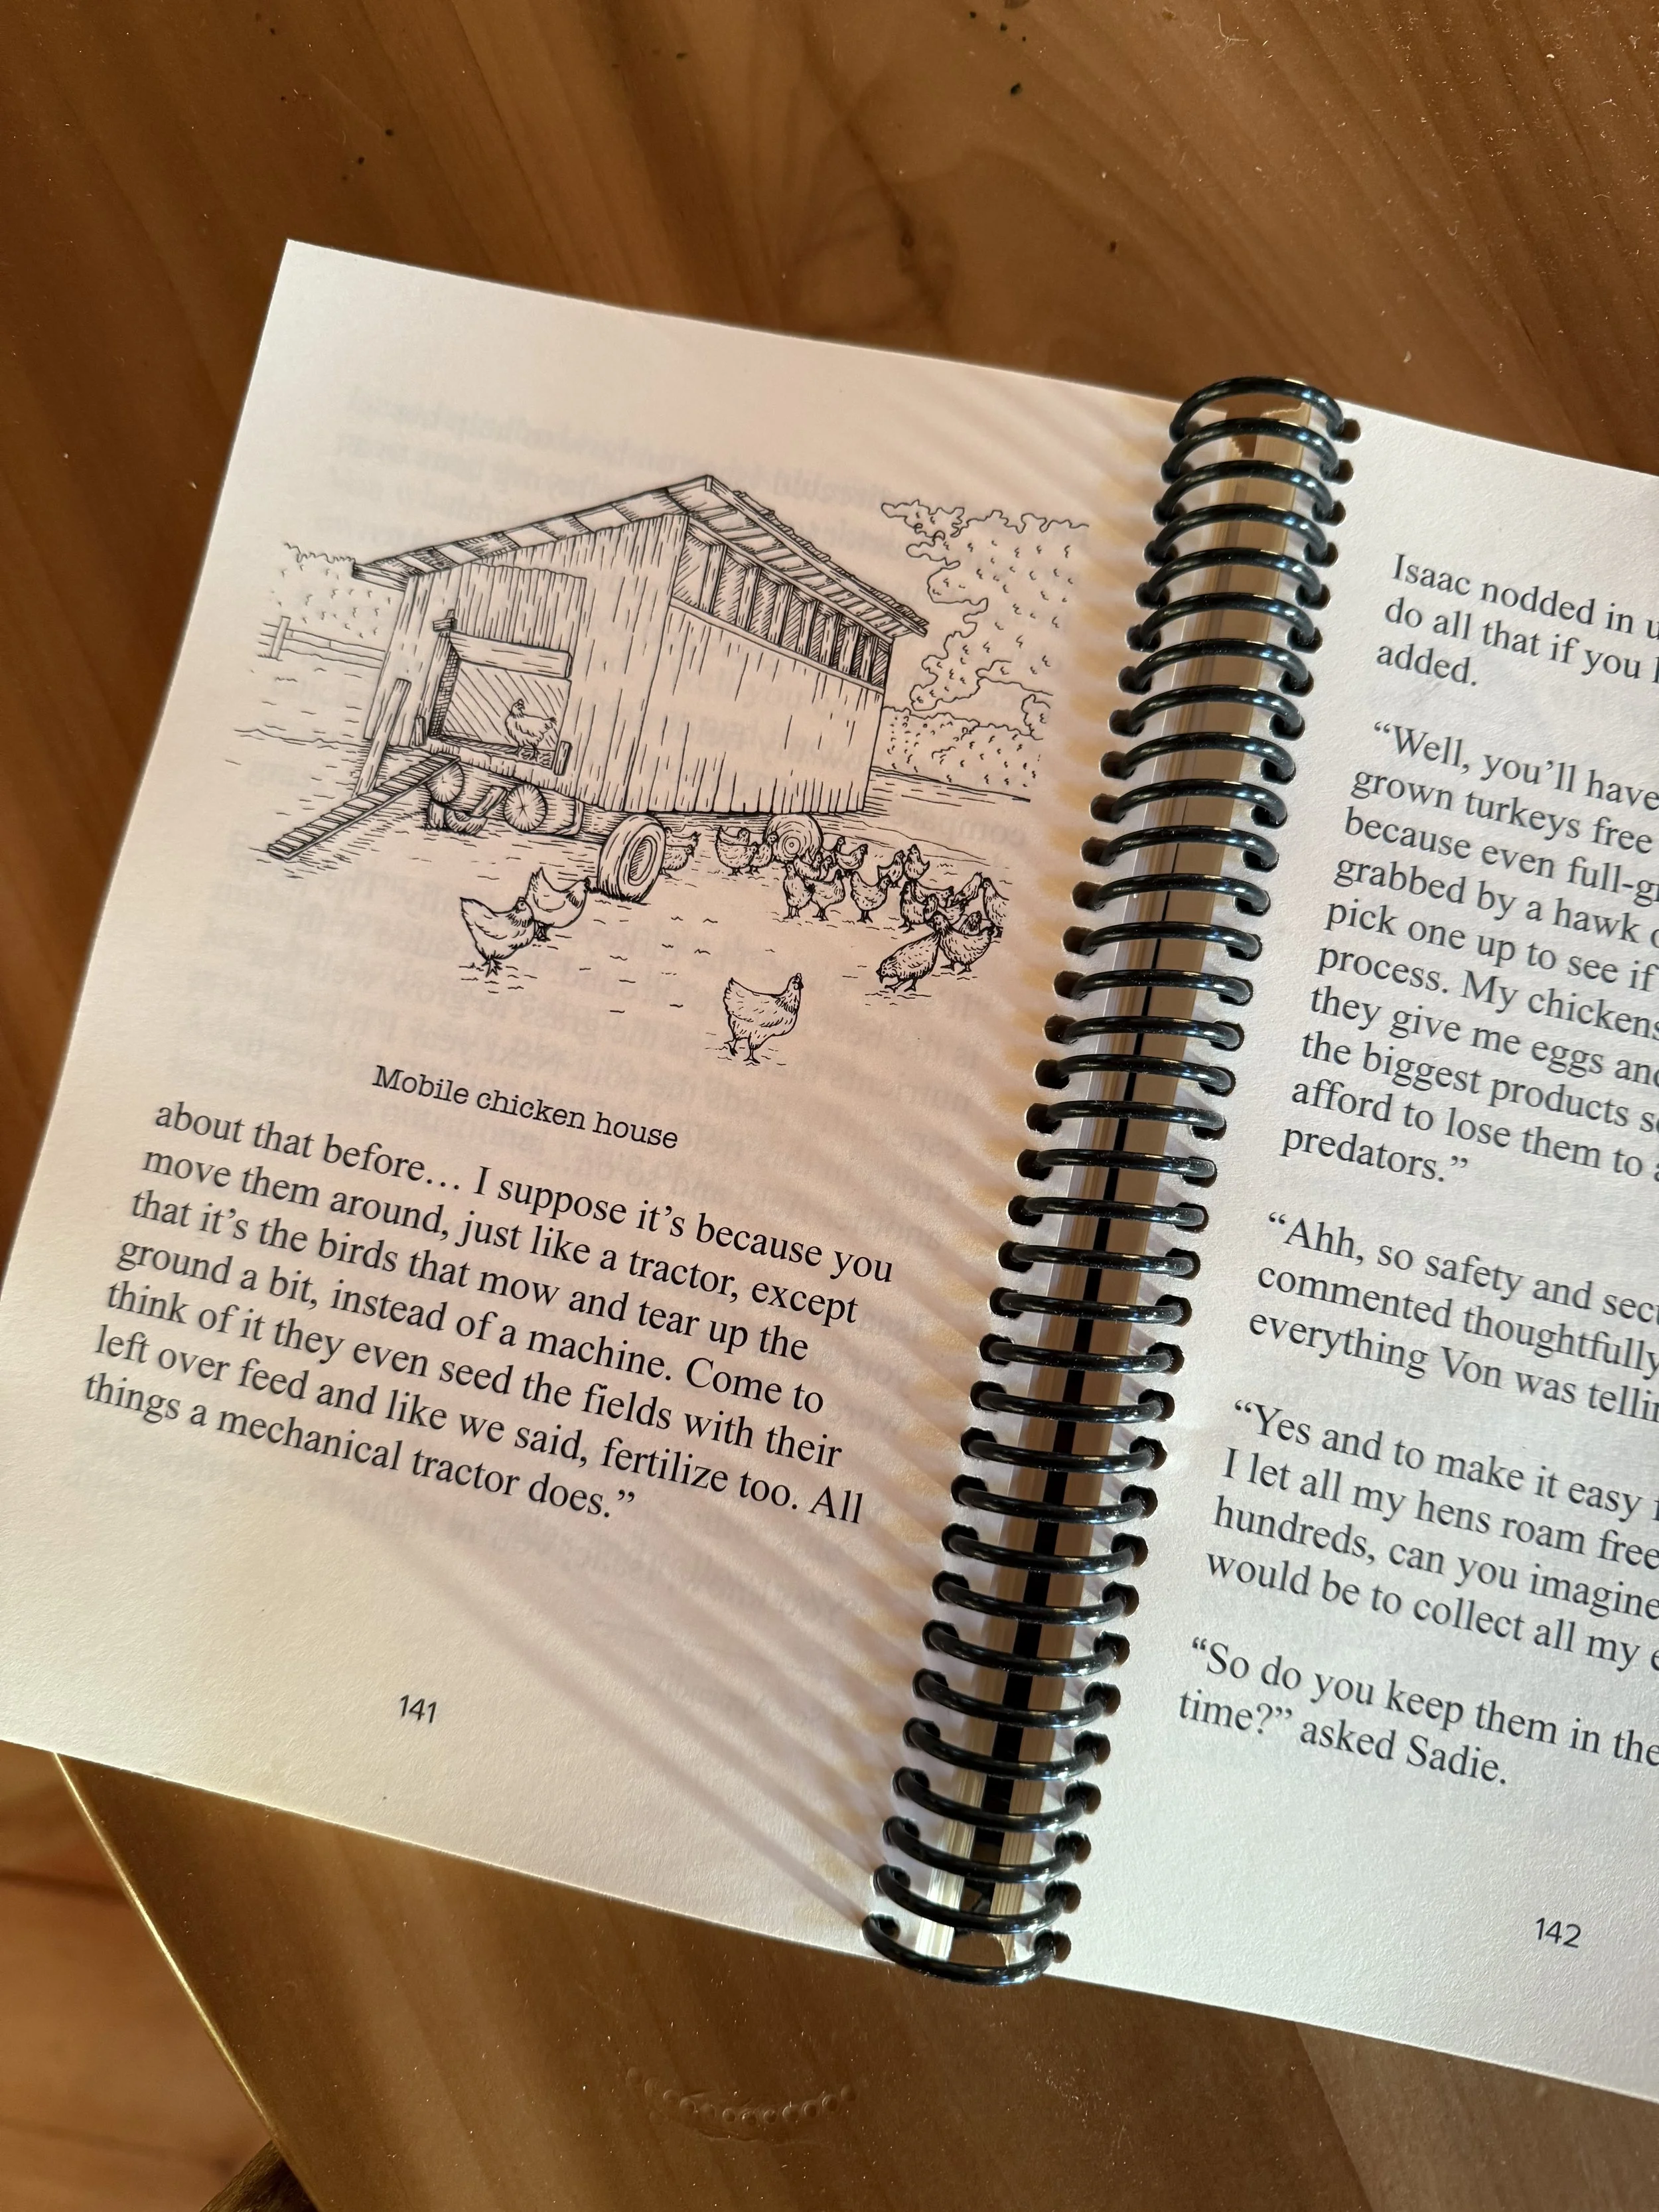 Mobile chicken house
about that before… I suppose it’s because you
move them around, just like a tractor, except
that it’s the birds that mow and tear up the
ground a bit, instead of a machine. Come to
think of it they even seed the fields with their
left over feed and like we said, fertilize too. All
things a mechanical tractor does.”
141
Isaac nodded in
do all that if you
added.
“Well, you’ll have
grown turkeys free
because even full-
grabbed by a hawk
pick one up to see if
process. My chickens
they give me eggs and
the biggest products
afford to lose them to
predators.”
“Ahh, so safety and
commented thoughtfully
everything Von was
“Yes and to make it easy
I let all my hens roam free
hundreds, can you imagine
would be to collect all my
“So do you keep them in the
time?” asked Sadie.
142